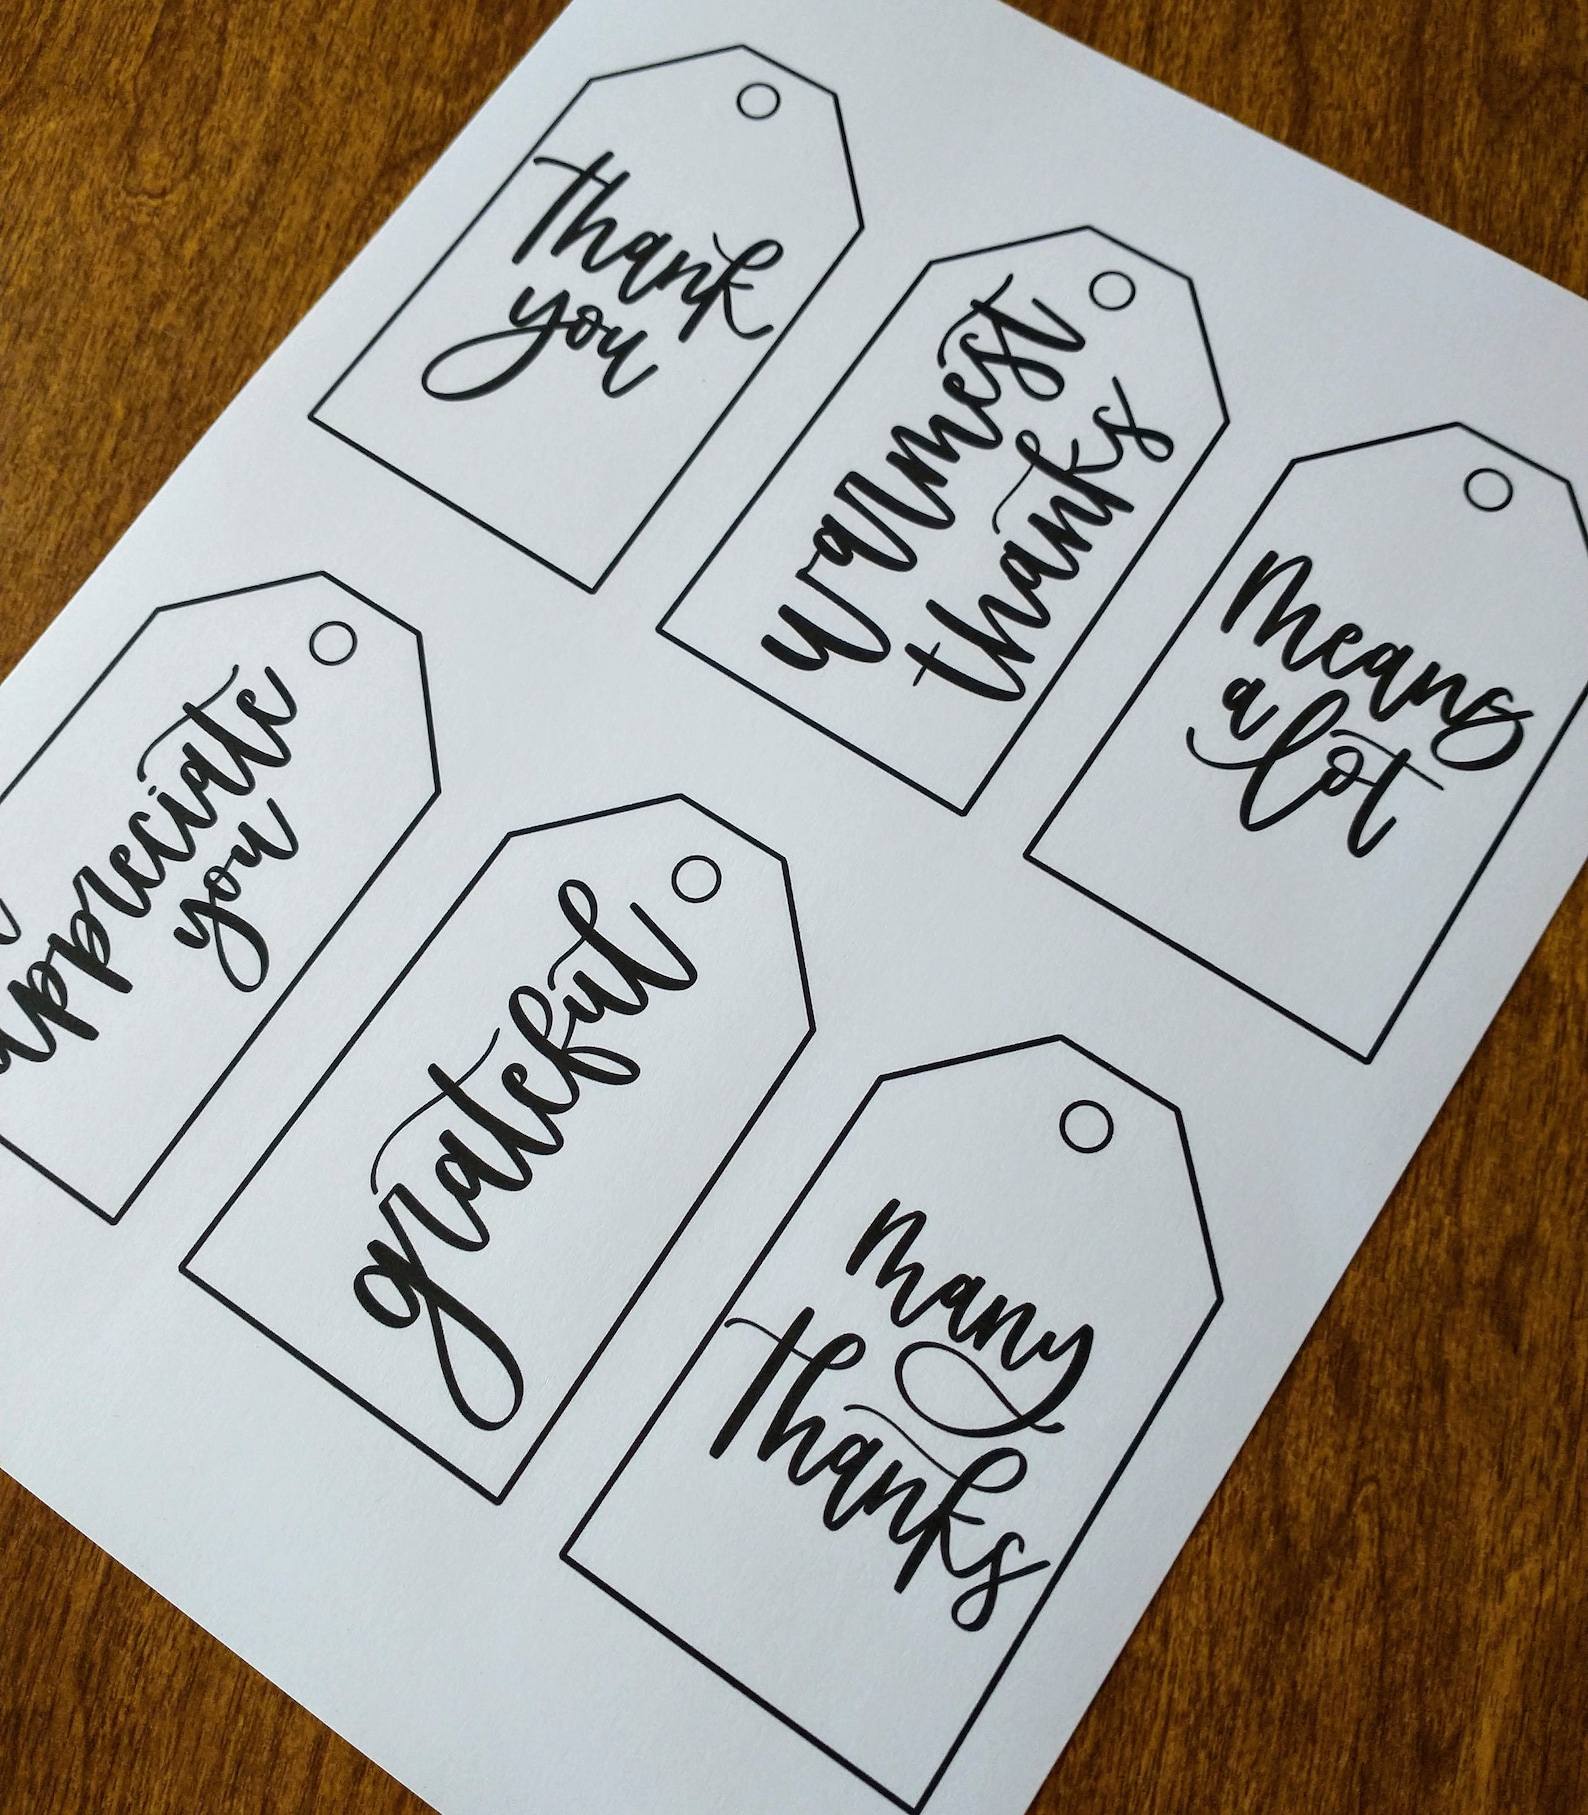 thank
you
warmest
thanks
means
a lot
appreciate
you
grateful
many
thanks